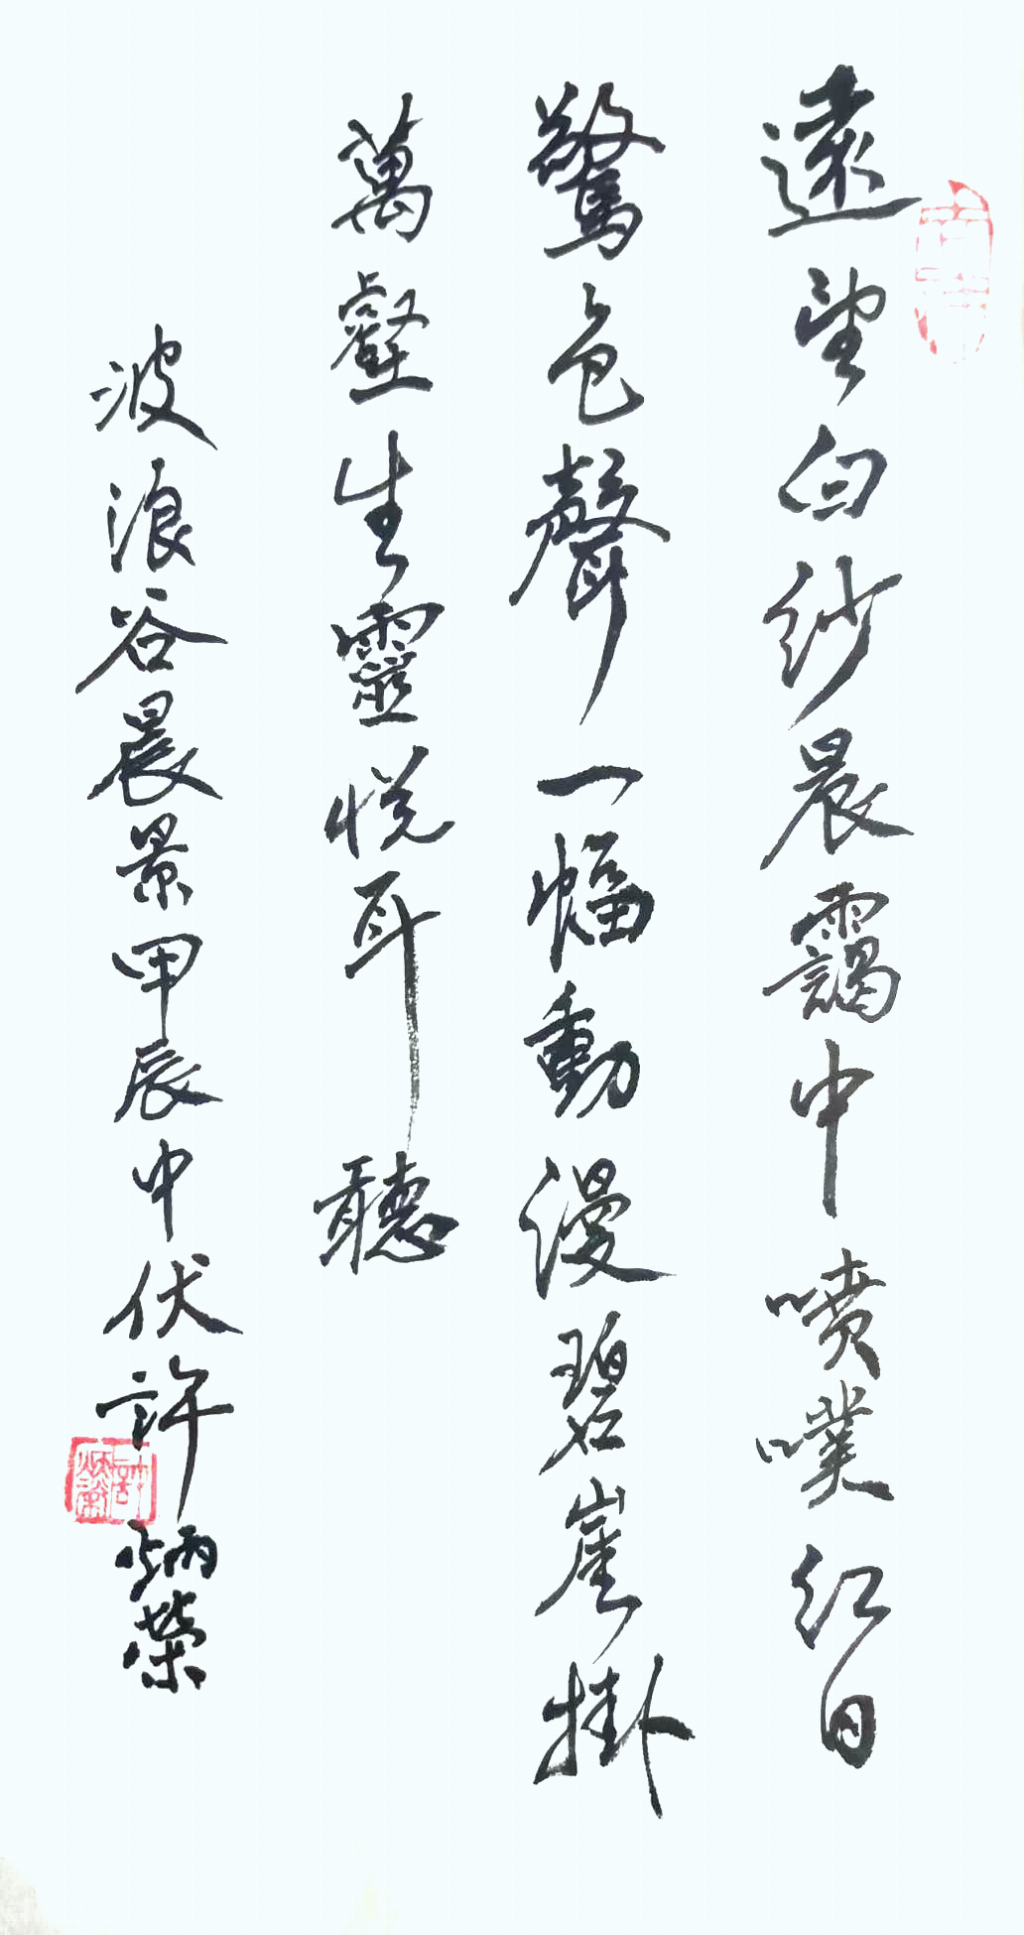 遠望白紗晨靄中噴噗红日
驚色聲一幅動漫碧崖掛
萬壑生靈悦耳聽
波浪谷晨景甲辰中伏許炳榮
許炳榮